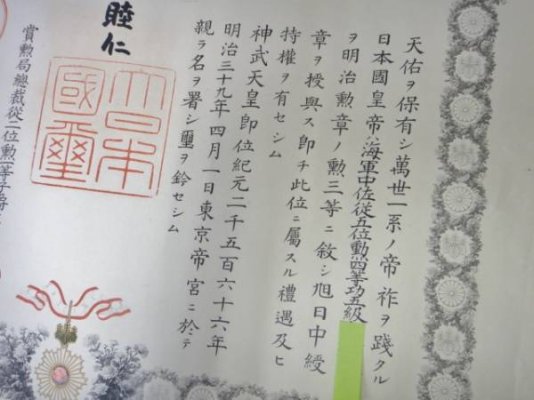 天佑ヲ保有シ萬世一系ノ帝祚ヲ踐タル
日本國皇帝ハ海軍中佐從五位勲四等功五級
ヲ明治勲章ノ勲三等ニ敘シ旭日中綬
章ヲ授與ス即チ此位ニ屬スル禮遇及ヒ
特權ヲ有セシム
神武天皇即位紀元二千五百六十六年
明治三十九年四月一日東京帝宮ニ於テ
親ラ名ヲ署シ璽ヲ鈐セシム
睦仁
大日本
國璽
賞勲局總裁從二位勲一等子爵